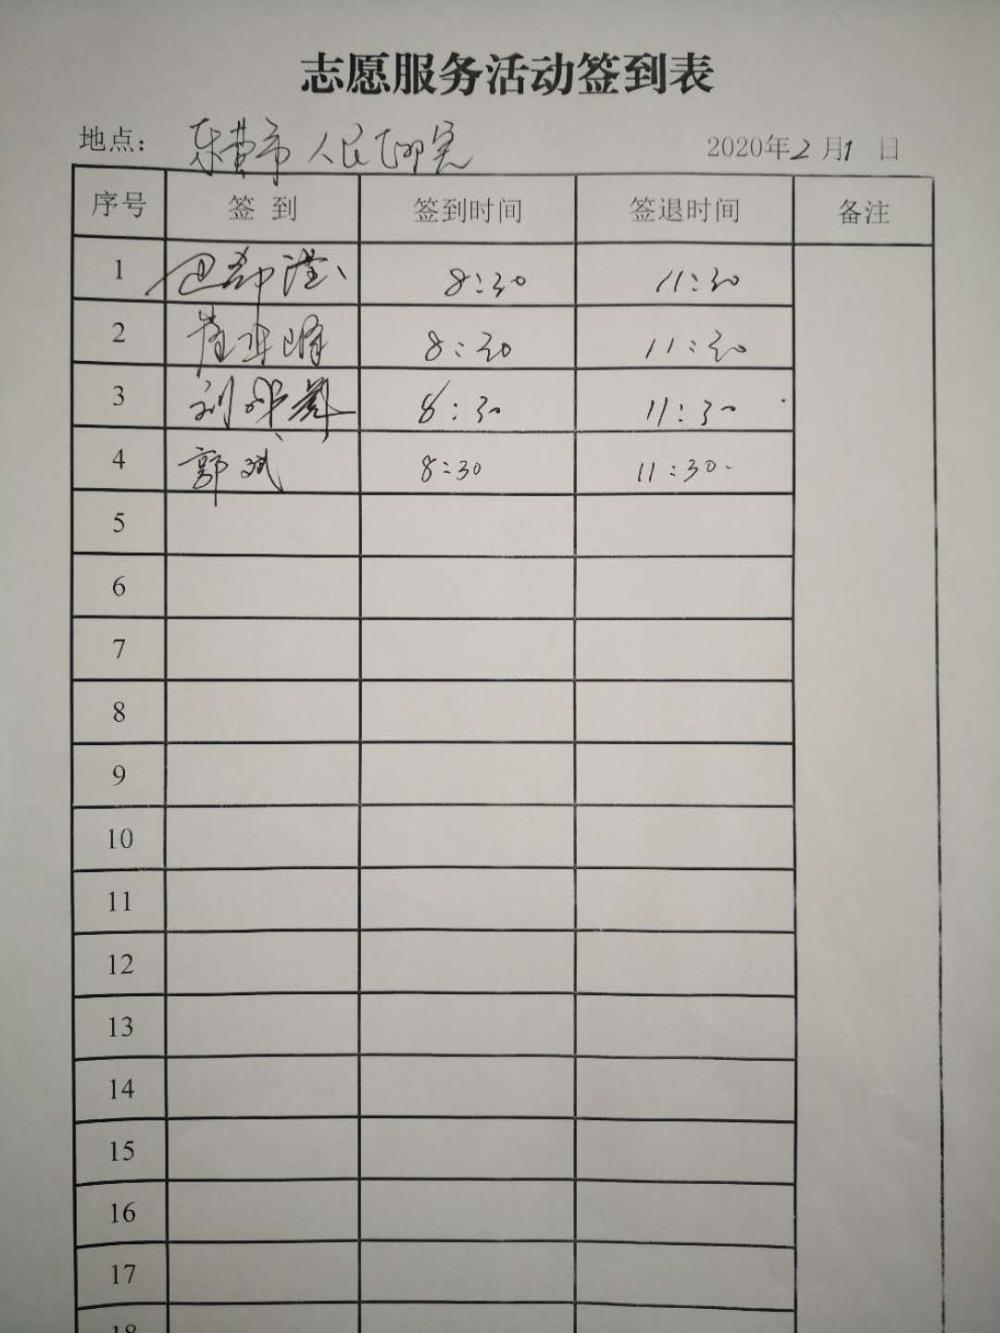 志愿服务活动签到表
地点: 东营市人民医院 2020年2月1日
序号 签到 签到时间 签退时间 备注
1 8:30 11:30
2 8:30 11:30
3 刘 8:30 11:30
4 郭斌 8:30 11:30
5
6
7
8
9
10
11
12
13
14
15
16
17
18